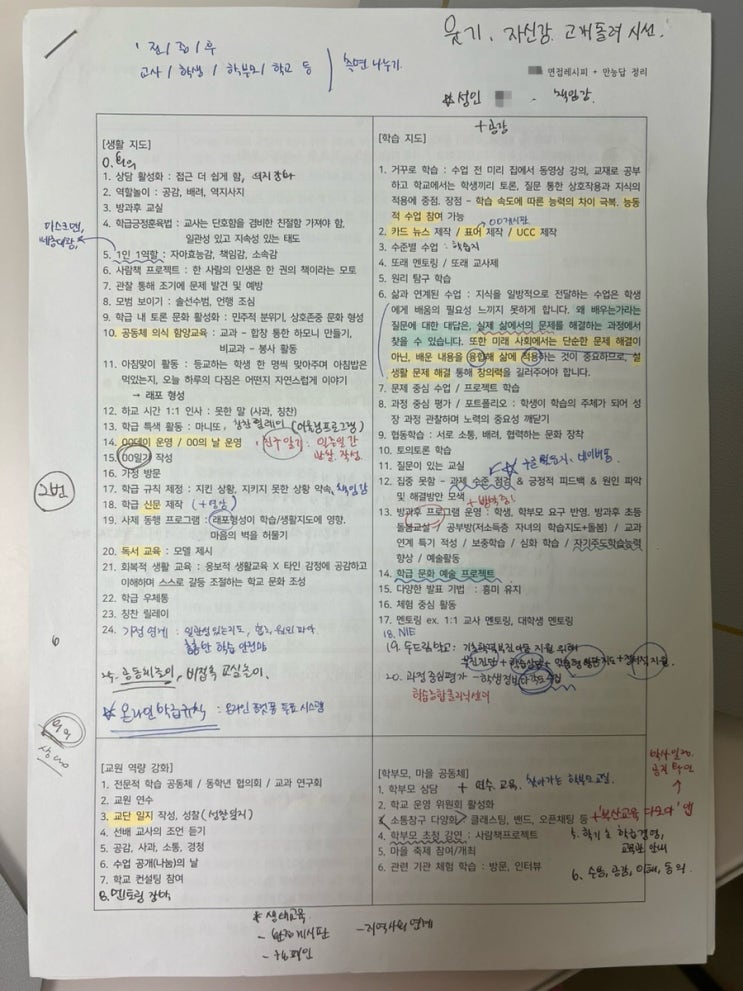 웃기, 자신감, 고개돌려 시선.
전/중/후
교사 / 학생 / 학부모 / 학교 등
측면 나누기
면접레시피 + 만능답 정리
성인
책임감.
+ 공감
[생활 지도]
1. 상담 활성화 : 접근 더 쉽게 함,
2. 역할놀이 : 공감, 배려, 역지사지
3. 방과후 교실
4. 학급긍정훈육법 : 교사는 단호함을 겸비한 친절함 가져야 함,
일관성 있고 지속성 있는 태도
5. 1인 1역할 : 자아효능감, 책임감, 소속감
6. 사람책 프로젝트 : 한 사람의 인생은 한 권의 책이라는 모토
7. 관찰 통해 조기에 문제 발견 및 예방
8. 모범 보이기 : 솔선수범, 언행 조심
9. 학급 내 토론 문화 활성화 : 민주적 분위기, 상호존중 문화 형성
10. 공동체 의식 함양교육 : 교과 - 합창 통한 하모니 만들기,
비교과 - 봉사 활동
11. 아침맞이 활동 : 등교하는 학생 한 명씩 맞아주며 아침밥은
먹었는지, 오늘 하루의 다짐은 어떤지 자연스럽게 이야기
→ 래포 형성
12. 하교 시간 1:1 인사 : 못한 말 (사과, 칭찬)
13. 학급 특색 활동 : 마니또, 칭찬 릴레이 (어울림프로그램)
14. 00데이 운영 / 00의 날 운영
친구일기 : 일주일간
관찰, 작성.
15. 00일기 작성
16. 가정 방문
17. 학급 규칙 제정 : 지킨 상황, 지키지 못한 상황 약속, 책임감
18. 학급 신문 제작 (+ 영상)
19. 사제 동행 프로그램 : 래포형성이 학습/생활지도에 영향.
마음의 벽을 허물기
20. 독서 교육 : 모델 제시
21. 회복적 생활 교육 : 응보적 생활교육 X 타인 감정에 공감하고
이해하며 스스로 갈등 조절하는 학교 문화 조성
22. 학급 우체통
23. 칭찬 릴레이
24. 가정 연계 : 일관성있는지도, 협조, 원인 파악
촘촘한 학습 안전망
25. 공동체놀이, 비접촉 교실놀이.
온라인학급규칙 : 온라인 플랫폼 투표 시스템
2번
[학습 지도]
1. 거꾸로 학습 : 수업 전 미리 집에서 동영상 강의, 교재로 공부
하고 학교에서는 학생끼리 토론, 질문 통한 상호작용과 지식의
적용에 중점. 장점 - 학습 속도에 따른 능력의 차이 극복. 능동
적 수업 참여 가능
00게시판
2. 카드 뉴스 제작 / 표어 제작 / UCC 제작
3. 수준별 수업 : 학습지
4. 또래 멘토링 / 또래 교사제
5. 원리 탐구 학습
6. 삶과 연계된 수업 : 지식을 일방적으로 전달하는 수업은 학생
에게 배움의 필요성 느끼지 못하게 합니다. 왜 배우는가라는
질문에 대한 대답은, 실제 삶에서의 문제를 해결하는 과정에서
찾을 수 있습니다. 또한 미래 사회에서는 단순한 문제 해결이
아닌, 배운 내용을 융합해 삶에 적용하는 것이 중요하므로, 실
생활 문제 해결 통해 창의력을 길러주어야 합니다.
7. 문제 중심 수업 / 프로젝트 학습
8. 과정 중심 평가 / 포트폴리오 : 학생이 학습의 주체가 되어 성
장 과정 관찰하며 노력의 중요성 깨닫기
9. 협동학습 : 서로 소통, 배려, 협력하는 문화 장착
10. 토의토론 학습
11. 질문이 있는 교실
12. 집중 못함 - 과제 수준 점검 & 긍정적 피드백 & 원인 파악
및 해결방안 모색
13. 방과후 프로그램 운영 : 학생, 학부모 요구 반영. 방과후 초등
돌봄교실 / 공부방(저소득층 자녀의 학습지도+돌봄) / 교과
연계 특기 적성 / 보충학습 / 심화 학습 / 자기주도학습능력
향상 / 예술활동
14. 학급 문화 예술 프로젝트
15. 다양한 발표 기법 : 흥미 유지
16. 체험 중심 활동
17. 멘토링 ex. 1:1 교사 멘토링, 대학생 멘토링
18. NIE
19. 두드림학교: 기초학력부진아동 지원 위해
20. 과정중심평가 -
학습종합클리닉센터
[교원 역량 강화]
1. 전문적 학습 공동체 / 동학년 협의회 / 교과 연구회
2. 교원 연수
3. 교단 일지 작성, 성찰 (성찰일지)
4. 선배 교사의 조언 듣기
5. 공감, 사과, 소통, 경청
6. 수업 공개(나눔)의 날
7. 학교 컨설팅 참여
8. 멘토링 장학
[학부모, 마을 공동체]
1. 학부모 상담 + 연수, 교육. 찾아가는 학부모교실.
2. 학교 운영 위원회 활성화
소통창구 다양화 / 클래스팅, 밴드, 오픈채팅 등 + '부산교육 다모다' 앱
4. 학부모 초청 강연 : 사람책프로젝트
5. 마을 축제 참여/개최
6. 관련 기관 체험 학습 : 방문, 인터뷰
6. 소통, 공감, 이해, 동의.
생태교육
- 환경게시판
- 지역사회 연계
- 캠페인